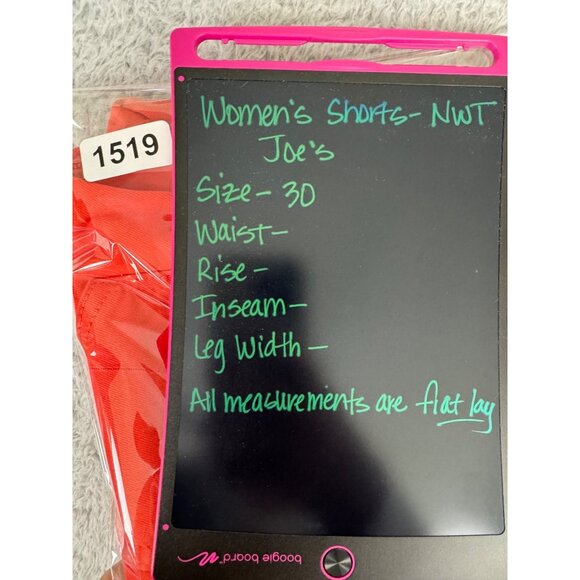 1519
Women's Shorts- NWT
Joe's
Size- 30
Waist-
Rise-
Inseam-
Leg Width-
All measurements are flat lay
boogie board™